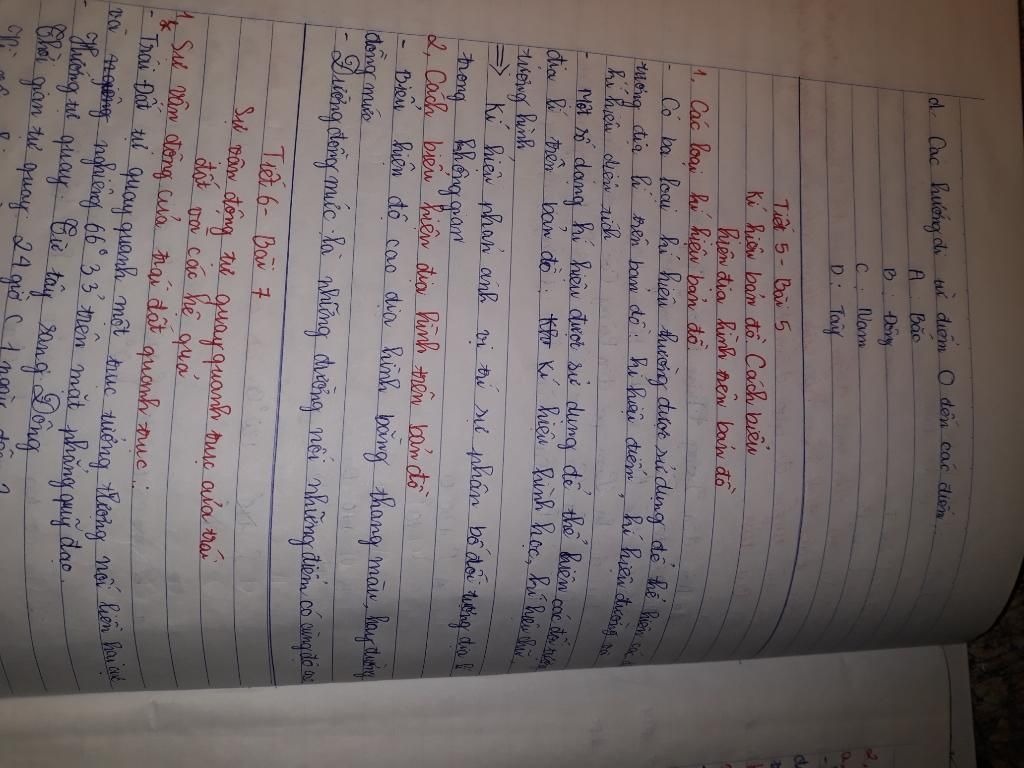 d. Các hướng đi từ điểm O đến các điểm...
A. Bắc
B. Đông
C. Nam
D. Tây
Tiết 5 - Bài 5
Kí hiệu bản đồ. Cách biểu
hiện địa hình trên bản đồ
1. Các loại kí hiệu bản đồ
- Có ba loại kí hiệu thường được sử dụng để thể hiện các đối
tượng địa lí trên bản đồ: kí hiệu điểm, kí hiệu đường và
kí hiệu diện tích
- Một số dạng kí hiệu được sử dụng để thể hiện các đối tượng
địa lí trên bản đồ: Kí hiệu hình học, kí hiệu chữ,
tượng hình
=> Kí hiệu phản ánh vị trí sự phân bố đối tượng địa lí
trong không gian
2. Cách biểu hiện địa hình trên bản đồ
- Biểu hiện độ cao địa hình bằng thang màu, hay đường
đồng mức
- Đường đồng mức là những đường nối những điểm có cùng độ cao
Tiết 6 - Bài 7
Sự vận động tự quay quanh trục của trái
đất và các hệ quả
1. Sự vận động của trái đất quanh trục:
* - Trái Đất tự quay quanh một trục tưởng tượng nối liền hai cực
và nghiêng 66° 33' trên mặt phẳng quỹ đạo.
- Hướng tự quay: Từ tây sang Đông
- Thời gian tự quay 24 giờ (1 ngày đêm)